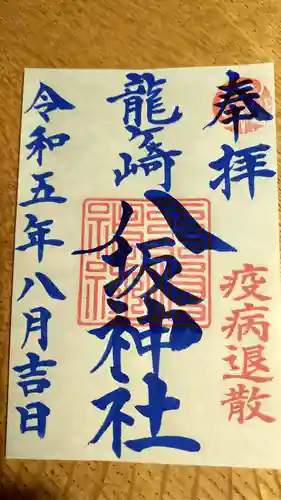 奉拝
疫病退散
龍ヶ崎
八坂神社
令和五年八月吉日